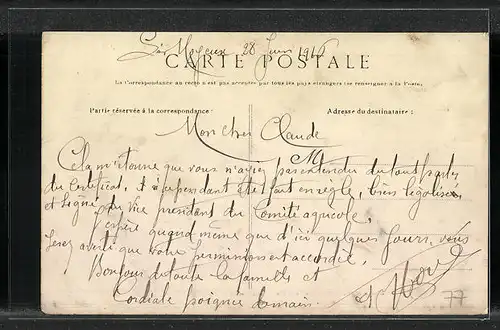 28 Juin 1916
CARTE POSTALE
La Correspondance au recto n'est pas acceptée par tous les pays étrangers (se renseigner à la Poste)
Partie réservée à la correspondance :
Adresse du destinataire :
Mon cher Claude
M
Cela m'étonne que vous n'aviez pas entendu du tout parler
du Certificat, il a cependant été fait en règle, bien légalisé
et signé du vice président du Comité agricole,
J'espère quand même que d'ici quelques jours, vous
serez averti que votre permission est accordée,
Bonjour de toute la famille et
Cordiale poignée de main.
77